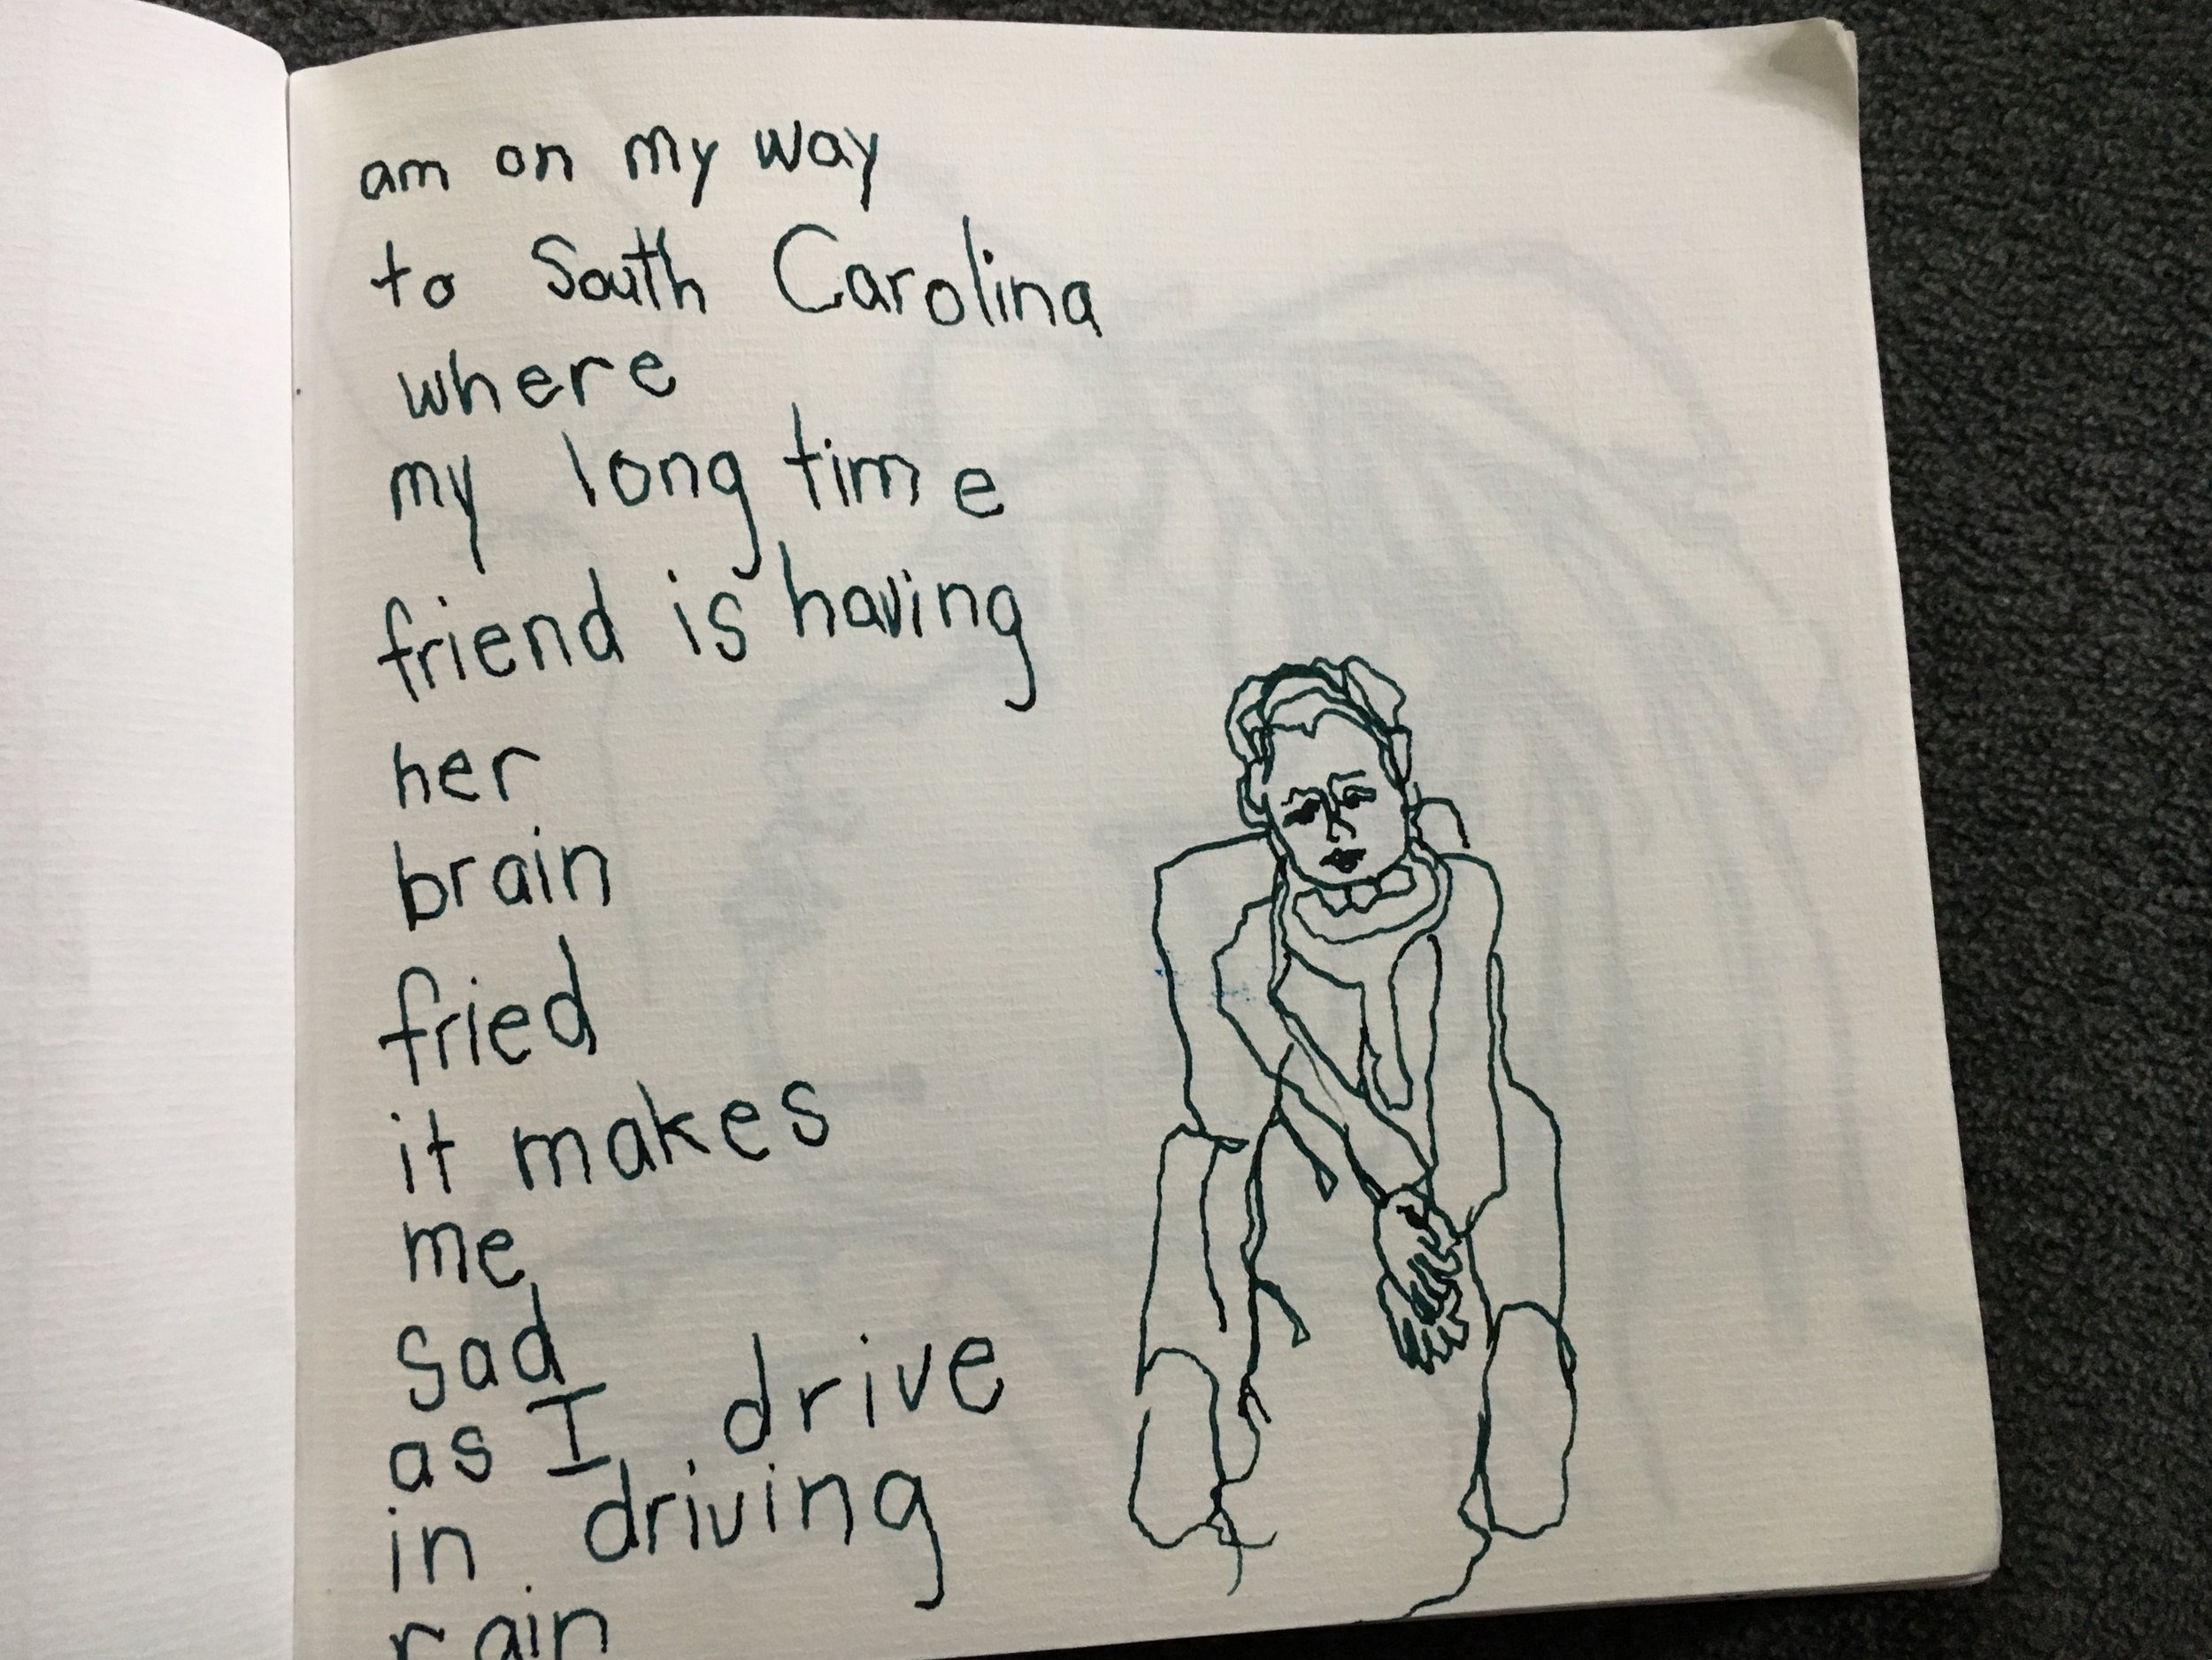 am on my way
to South Carolina
where
my long time
friend is having
her
brain
fried
it makes
me
sad
as I drive
in driving
rain